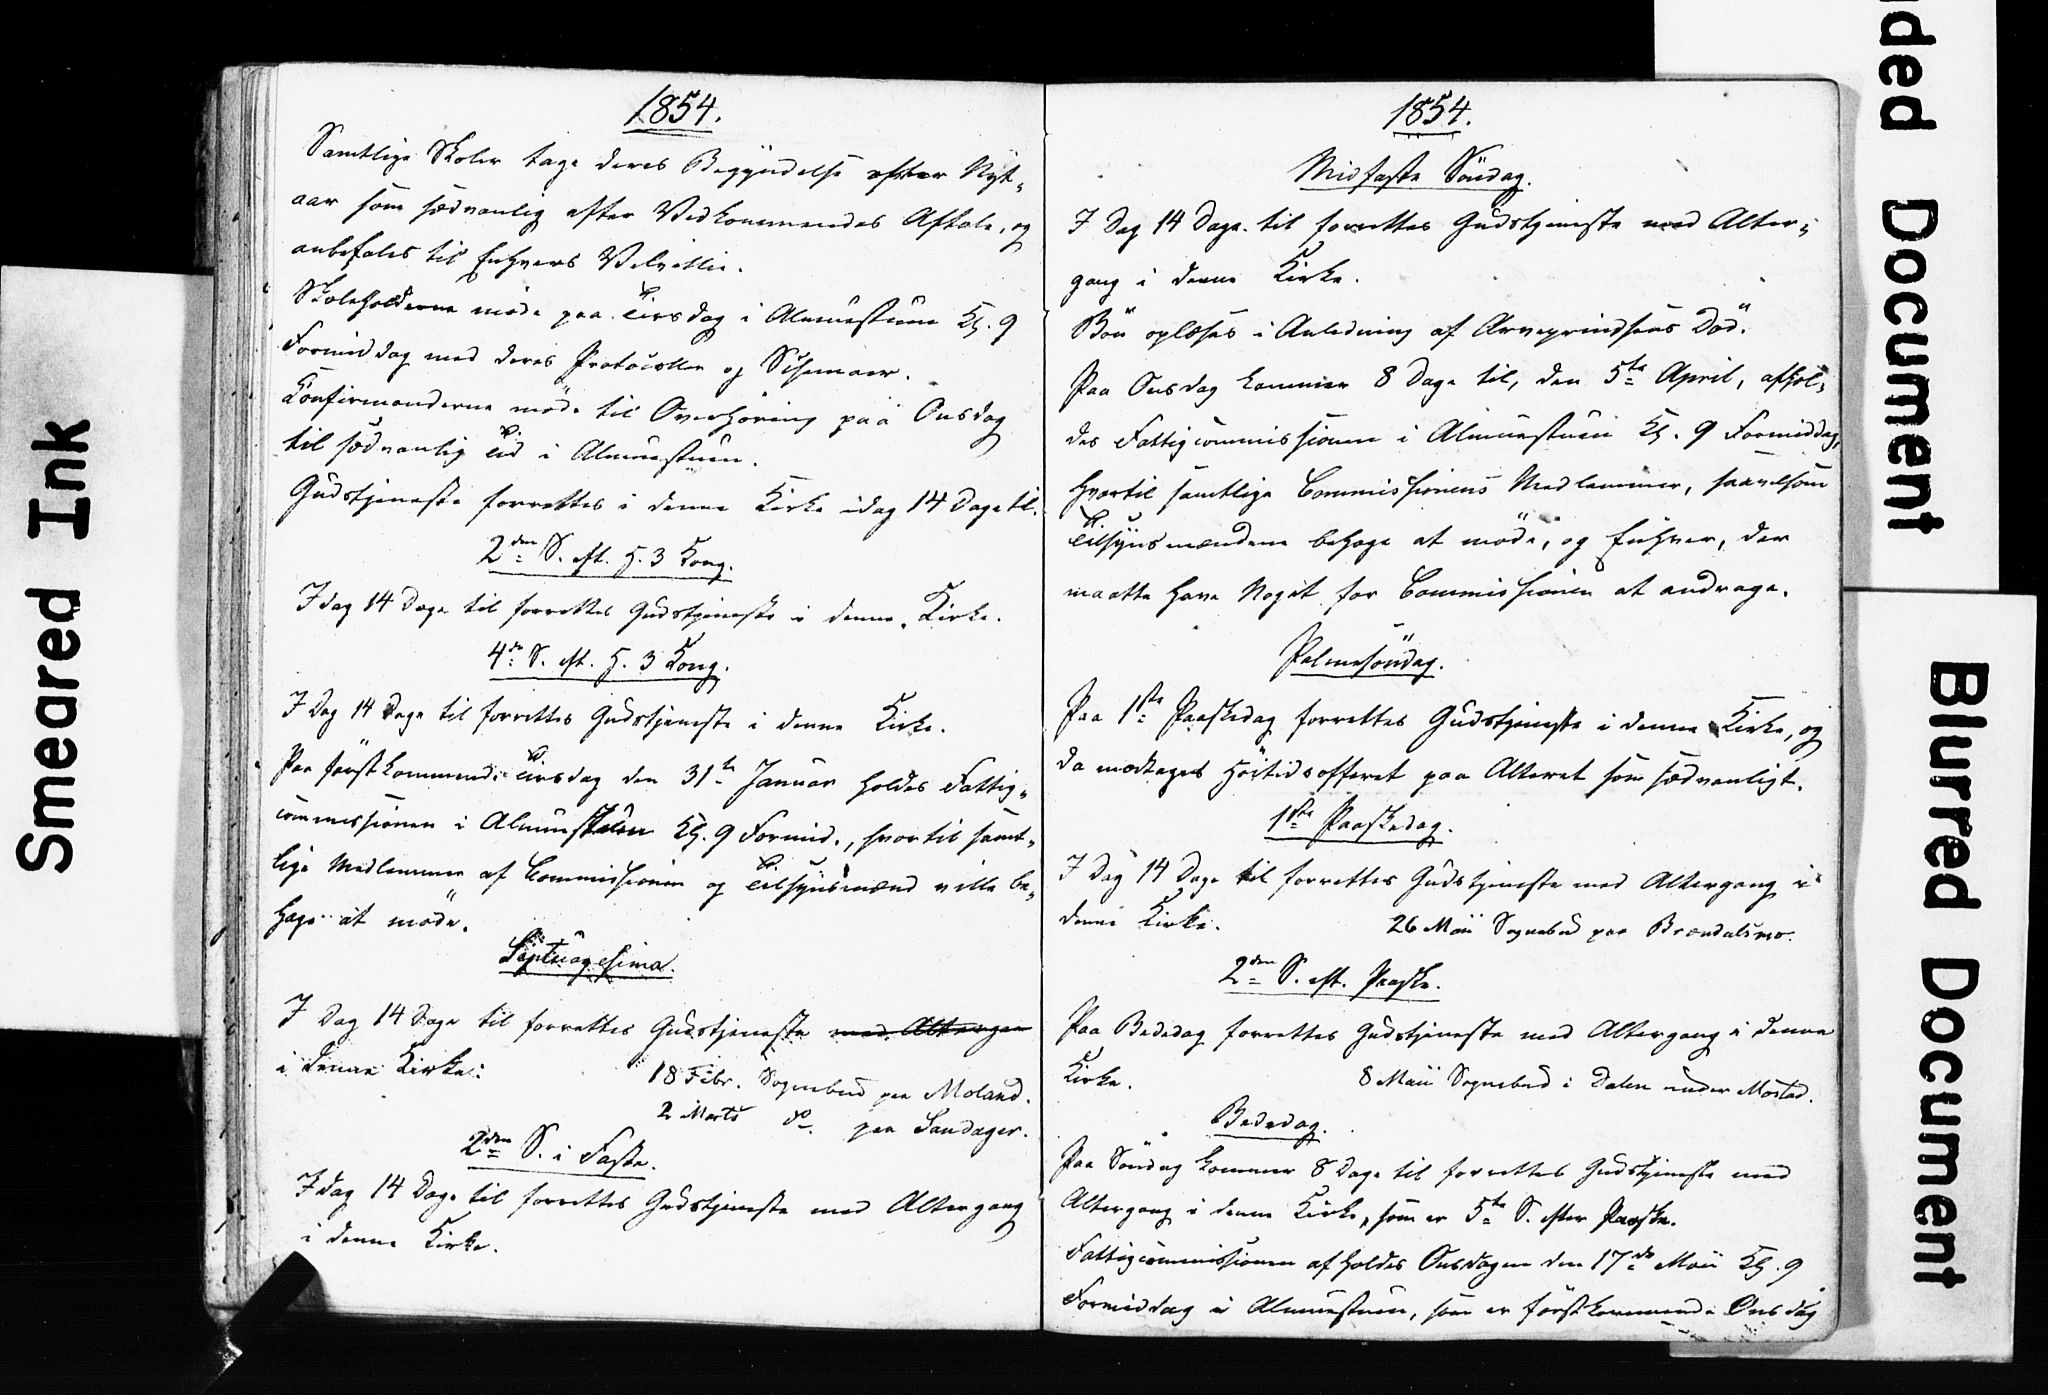 1854.
Samtlige Skoler tage deres Begyndelse efter Nyt-
aar som sædvanlig efter Vedkommendes Aftale, og
anbefales til Enhvers Velvillie.
Skoleholderne møde paa Tirsdag i Almuestuen Kl. 9
Formiddag med deres Protocoller og Schemaer.
Confirmanderne møde til Overhøring paa Onsdag
til sædvanlig Tid i Almuestuen.
Gudstjeneste forrettes i denne Kirke idag 14 Dage til.
2den S. eft. H. 3 Kong.
I dag 14 Dage til forrettes Gudstjeneste i denne Kirke.
4de S. eft. H. 3 Kong.
I Dag 14 Dage til forrettes Gudstjeneste i denne Kirke.
Paa førstkommende Tirsdag den 31te Januar holdes Fattig-
commissionen i Almuestuen Kl. 9 Formid., hvortil samt-
lige Medlemmer af Commissionen og Tilsynsmænd ville be-
hage at møde.
Septuagesima.
I Dag 14 Dage til forrettes Gudstjeneste med Altergan
i denne Kirke.
18 Febr. Sognebud paa Moland.
2 Marts do. paa Sandager.
2den S. i Faste.
I dag 14 Dage til forrettes Gudstjeneste med Altergang
i denne Kirke.
1854.
Midfaste Søndag.
I Dag 14 Dage til forrettes Gudstjeneste med Alter-
gang i denne Kirke.
Bøn oplæses i Anledning af Arveprindsens Død.
Paa Onsdag kommer 8 Dage til, den 5te April, afhol-
des Fattigcommissionen i Almuestuen Kl. 9 Formiddag,
hvortil samtlige Commissionens Medlemmer, saavelsom
Tilsynsmændene behage at møde, og Enhver, der
maatte have Noget for Commissionen at andrage.
Palmesøndag.
Paa 1ste Paaskedag forrettes Gudstjeneste i denne Kirke, og
da modtages Høitidsofferet paa Alteret som sædvanligt.
1ste Paaskedag.
I Dag 14 Dage til forrettes Gudstjeneste med Altergang i
denne Kirke.
26 Maii Sognebud paa Brændalsmo.
2den S. eft. Paaske.
Paa Bededag forrettes Gudstjeneste med Altergang i denne
Kirke.
8 Maii Sognebud i Dalen under Mostad.
Bededag.
Paa Søndag kommer 8 Dage til forrettes Gudstjeneste med
Altergang i denne Kirke, som er 5te S. efter Paaske.
Fattigcommissionen afholdes Onsdagen den 17de Maii Kl. 9
Formiddag i Almuestuen, som er førstkommende Onsdag
Smeared Ink
ded Document
Blurred Document